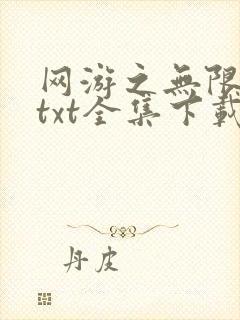 网游之無限
txt全集下載
丹皮